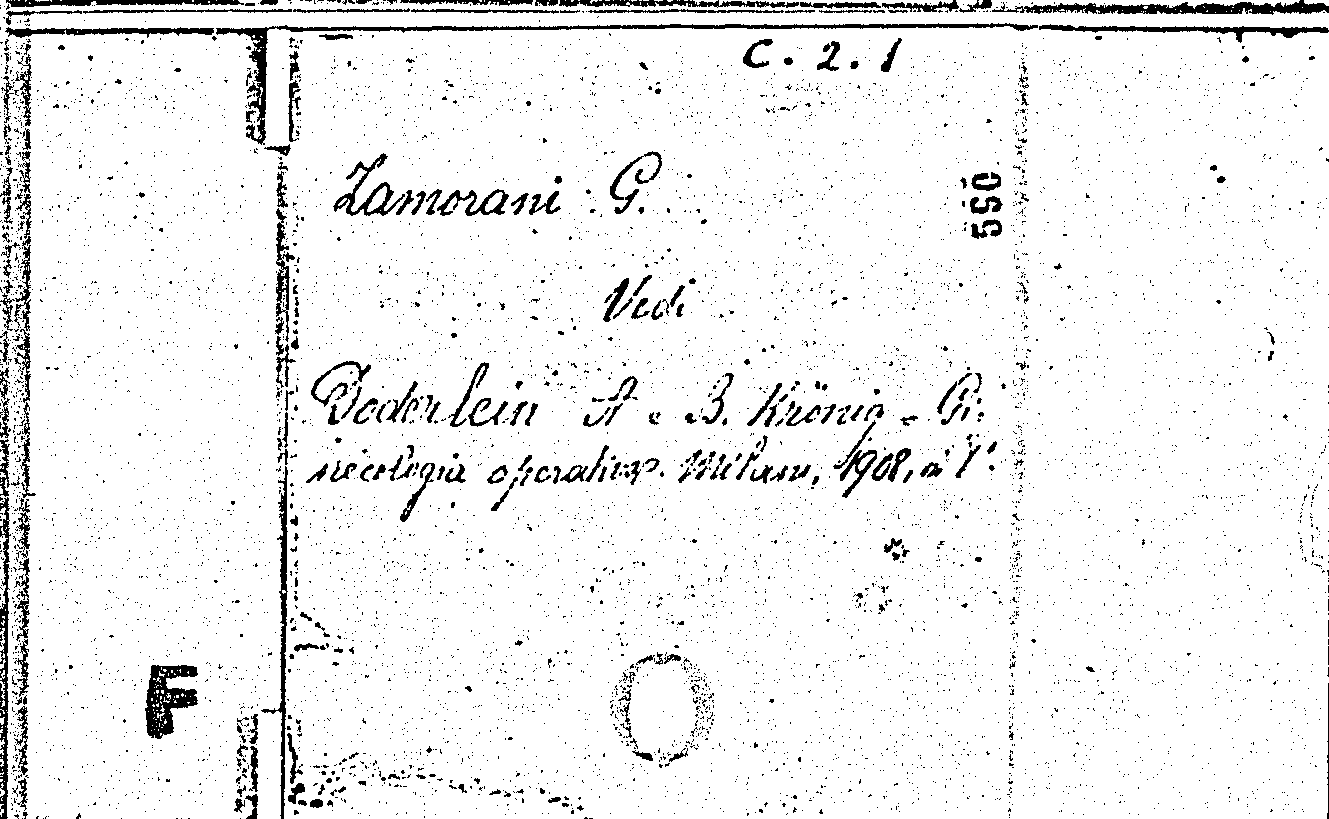 C. 2. 1
Zamorani G.
550
Vedi
Doderlein A e B. Krönig - Gi:
necologia operativa. Milano, 1908, in 8°.
F